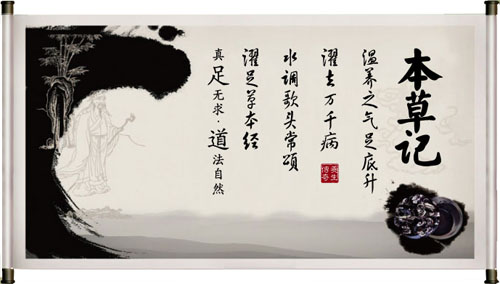 本草记
温养之气足底升
濯去万千病
养生传奇
水调歌头常颂
濯足草本经
真足无求·道法自然